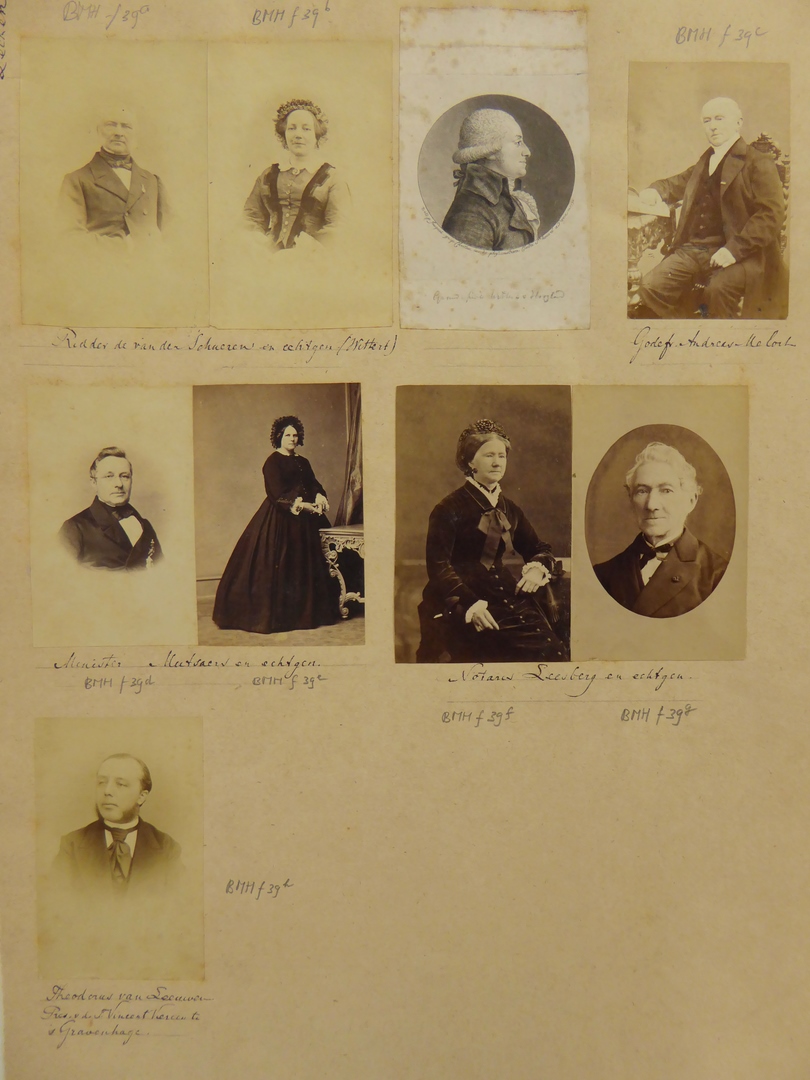 BMH f 39a
BMH f 39b
BMH f 39c
Ridder de van der Schueren en echtgen (Wittert)
Godefr. Andreas
Minister Mutsaers en echtgen.
BMH f 39d
BMH f 39e
Notaris Leesberg en echtgen.
BMH f 39f
BMH f 39g
BMH f 39h
Theodorus van Leeuwen
Pres. v. d. St Vincent Vereen te
s Gravenhage.